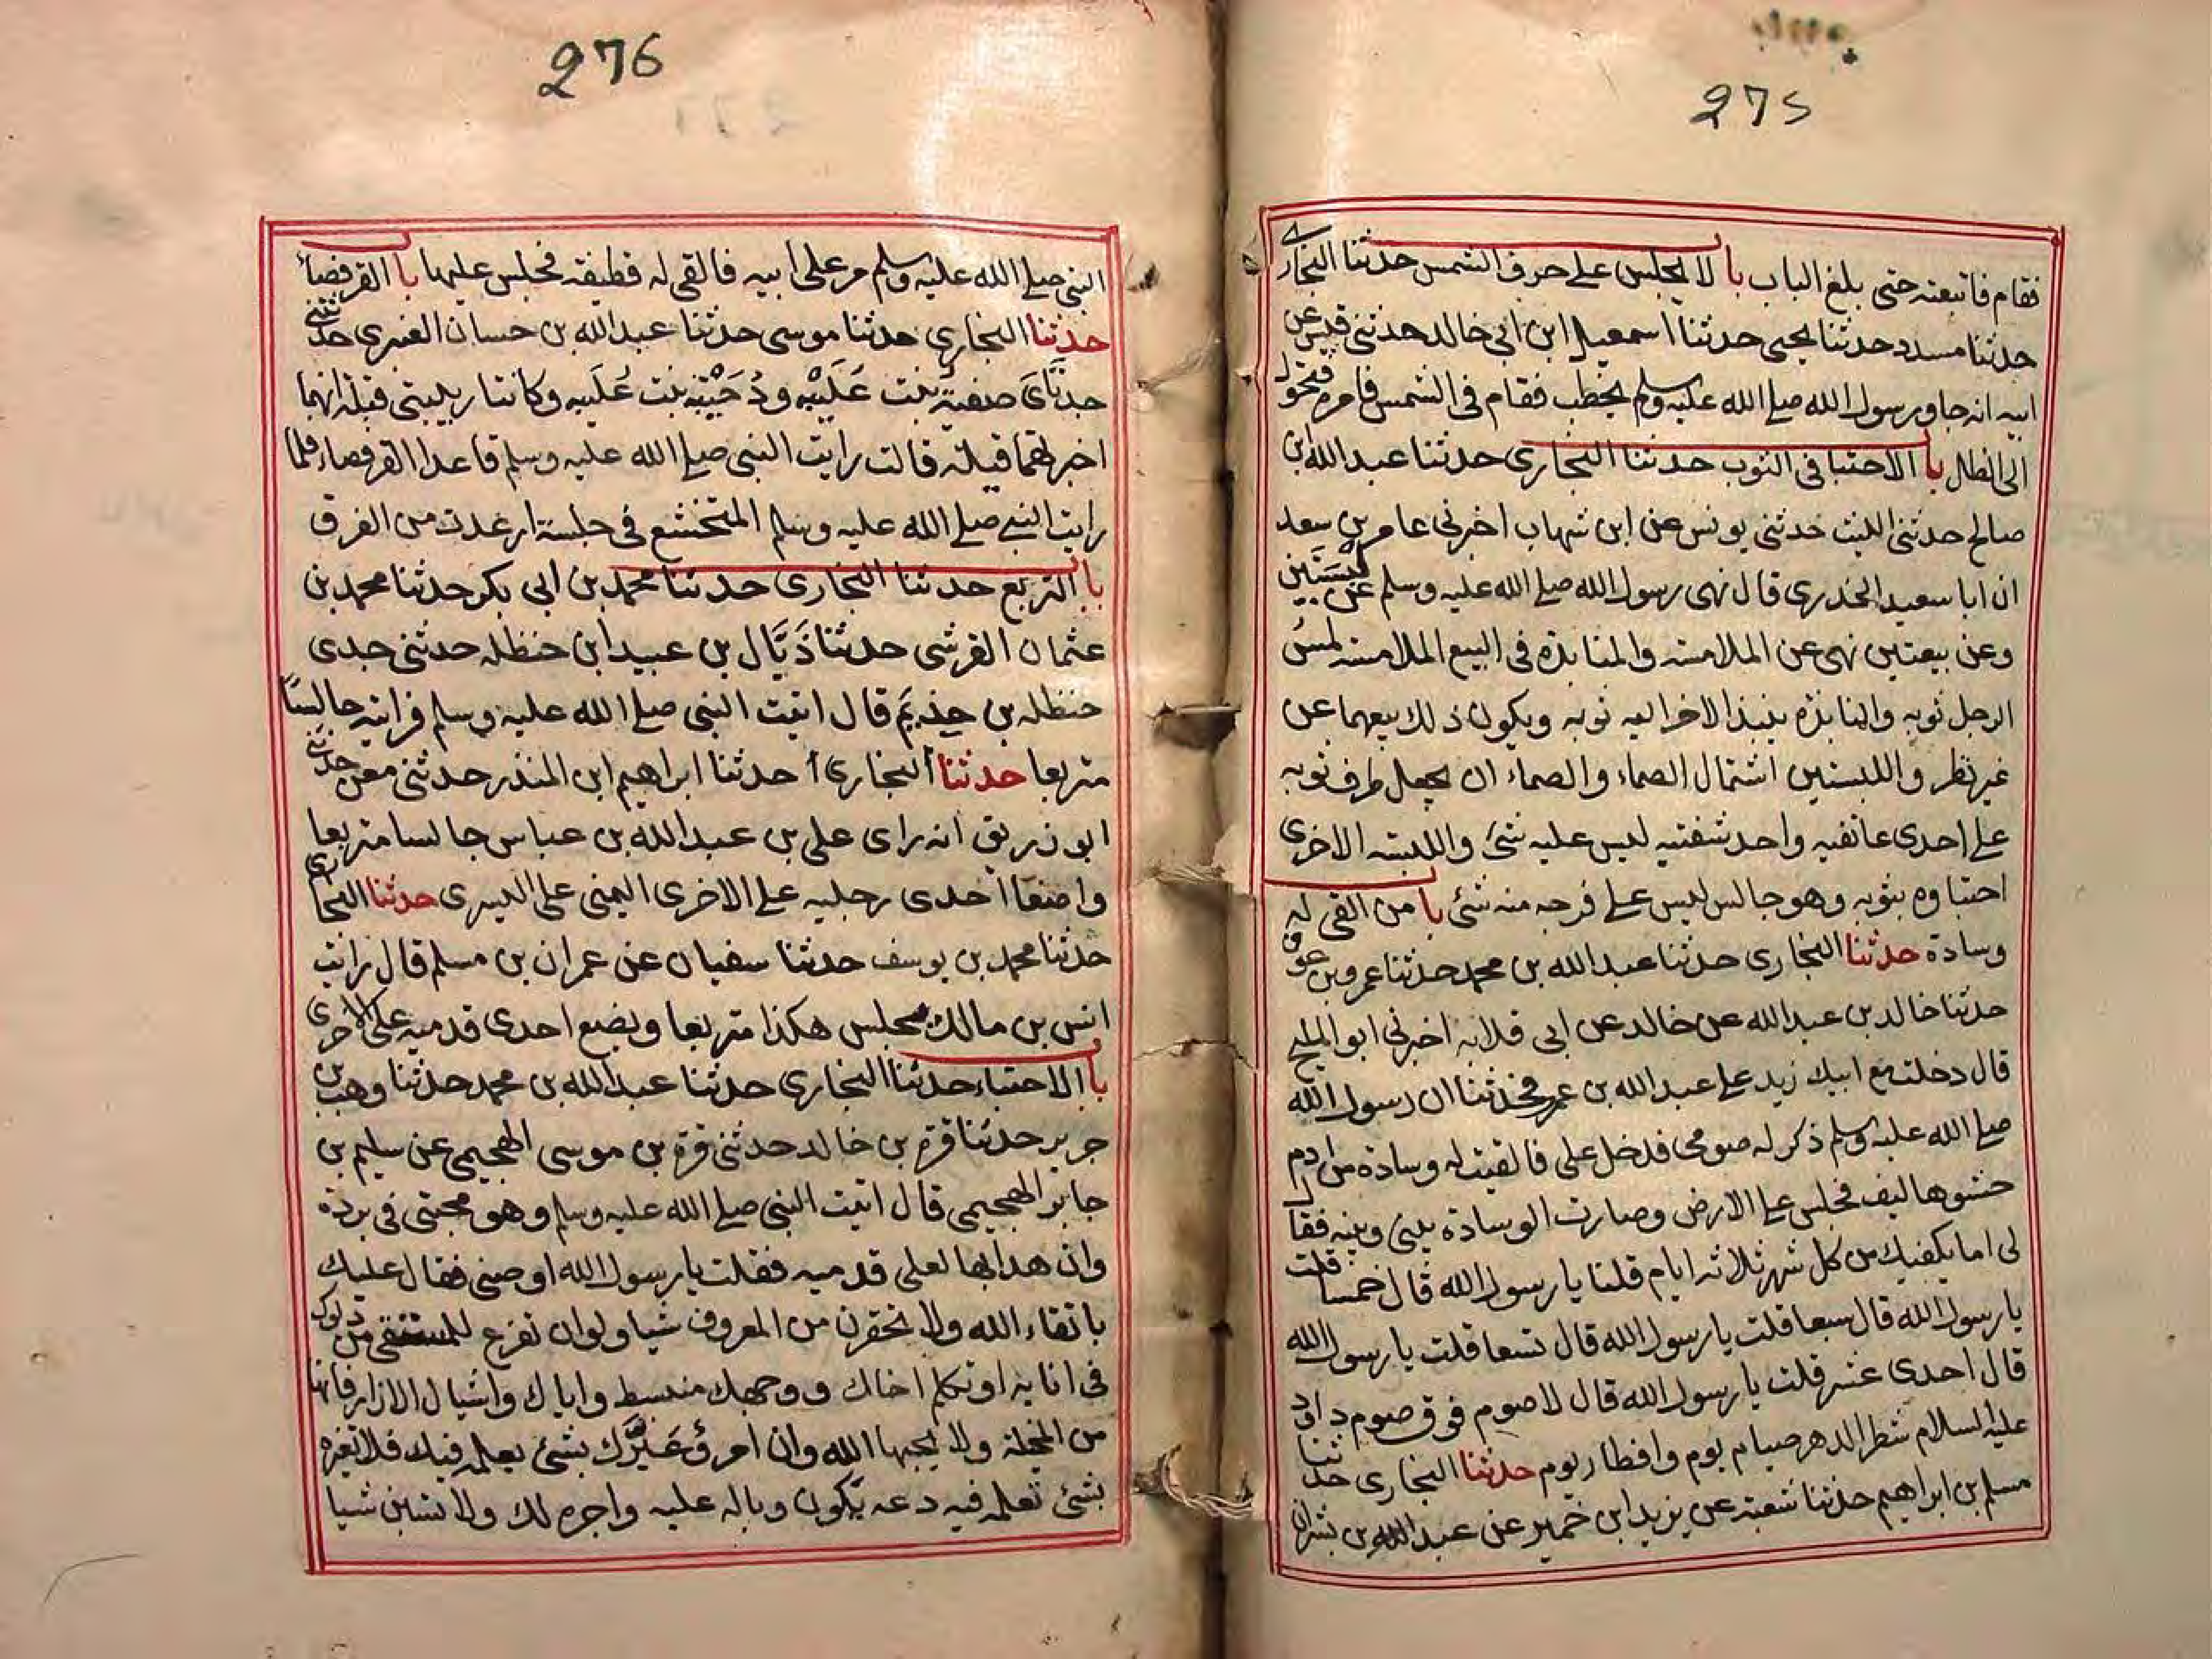 275
فقام فاتبعته حتى بلغ الباب با لا يجلس على حرف الشمس حدثنا البخاري
حدثنا مسدد حدثنا يحيى حدثنا اسمعيل ابن ابي خالد حدثني قيس عن
ابيه انه جاء ورسول الله صلى الله عليه وسلم يخطب فقام في الشمس فامره فتحول
الى الظل با الاحتبا في الثوب حدثنا البخاري حدثنا عبد الله بن
صالح حدثني الليث حدثني يونس عن ابن شهاب اخبرني عامر بن سعد
ان ابا سعيد الخدري قال نهى رسول الله صلى الله عليه وسلم عن لبستين
وعن بيعتين نهى عن الملامسه والمنابذة في البيع الملامسه لمس
الرجل ثوبه والمنابذه ينبذ الاخر اليه ثوبه ويكون ذلك بيعهما عن
غير نظر واللبستين اشتمال الصماء والصماء ان يجعل طرف ثوبه
على احدى عاتقيه واحد شقيه ليس عليه شئ واللبسه الاخرى
احتباوه بثوبه وهو جالس ليس على فرجه منه شئ با من القى له
وسادة حدثنا البخاري حدثنا عبد الله بن محمد حدثنا عمرو بن عون
حدثنا خالد بن عبد الله عن خالد عن ابي قلابه اخبرني ابو المليح
قال دخلت مع ابيك زيد على عبد الله بن عمرو فحدثنا ان رسول الله
صلى الله عليه وسلم ذكر له صومي فدخل علي فالقيت له وسادة من ادم
حشوها ليف فجلس على الارض وصارت الوسادة بيني وبينه فقال
لي اما يكفيك من كل شهر ثلاثه ايام قلنا يا رسول الله قال خمسا قلت
يا رسول الله قال سبعا قلت يا رسول الله قال تسعا قلت يا رسول الله
قال احدى عشر قلت يا رسول الله قال لا صوم فوق صوم داود
عليه السلام شطر الدهر صيام يوم وافطار يوم حدثنا البخاري حدثنا
مسلم بن ابراهيم حدثنا شعبة عن يزيد ابن خمير عن عبد الله بن بشران
276
النبي صلى الله عليه وسلم مر على ابيه فالقى له قطيفه فجلس عليها با القرفصاء
حدثنا البخاري حدثنا موسى حدثنا عبد الله بن حسان العنبري حدثتني
جدتاي صفية بنت عليبه ودحيبة بنت عليبه وكانتا ربيبتي قيلة انهما
اخبرتهما قيلة قالت رايت النبي صلى الله عليه وسلم قاعدا القرفصاء فلما
رايت النبي صلى الله عليه وسلم المتخشع في جلسة ارعدت من الفرق
با التربع حدثنا البخاري حدثنا محمد بن ابي بكر حدثنا محمد بن
عثمان القرشي حدثنا ذيال بن عبيد ابن حنظله حدثني جدي
حنظله بن حذيم قال اتيت النبي صلى الله عليه وسلم فراته جالسا
متربعا حدثنا البخاري حدثنا ابراهيم ابن المنذر حدثني معن حدثني
ابو زريق انه راى علي بن عبد الله بن عباس جالسا متربعا
واضعا احدى رجليه على الاخرى اليمنى على اليسرى حدثنا البخاري
حدثنا محمد بن يوسف حدثنا سفيان عن عمران بن مسلم قال رايت
انس بن مالك يجلس هكذا متربعا ويضع احدى قدميه على الاخرى
با الاحتباء حدثنا البخاري حدثنا عبد الله بن محمد حدثنا وهب بن
جرير حدثنا قرة بن خالد حدثني قرة بن موسى الهجيمي عن سليم بن
جابر الهجيمي قال اتيت النبي صلى الله عليه وسلم وهو محتبي في بردة
وان هدابها لعلى قدميه فقلت يا رسول الله اوصني فقال عليك
باتقاء الله ولا تحقرن من المعروف شيا ولو ان تفرغ للمستقي من دلوك
في انايه او تكلم اخاك ووجهك منبسط واياك واسبال الازار فانها
من المخيلة ولا يحبها الله وان امرؤ عيرك بشئ يعلمه فيك فلا تعيره
بشئ تعلمه فيه دعه يكون وباله عليه واجره لك ولا تسبن شيا